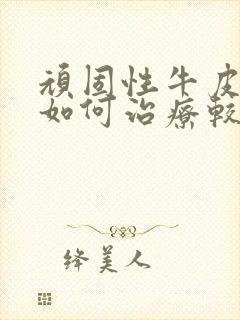 頑固性牛皮
如何治療較
绛美人